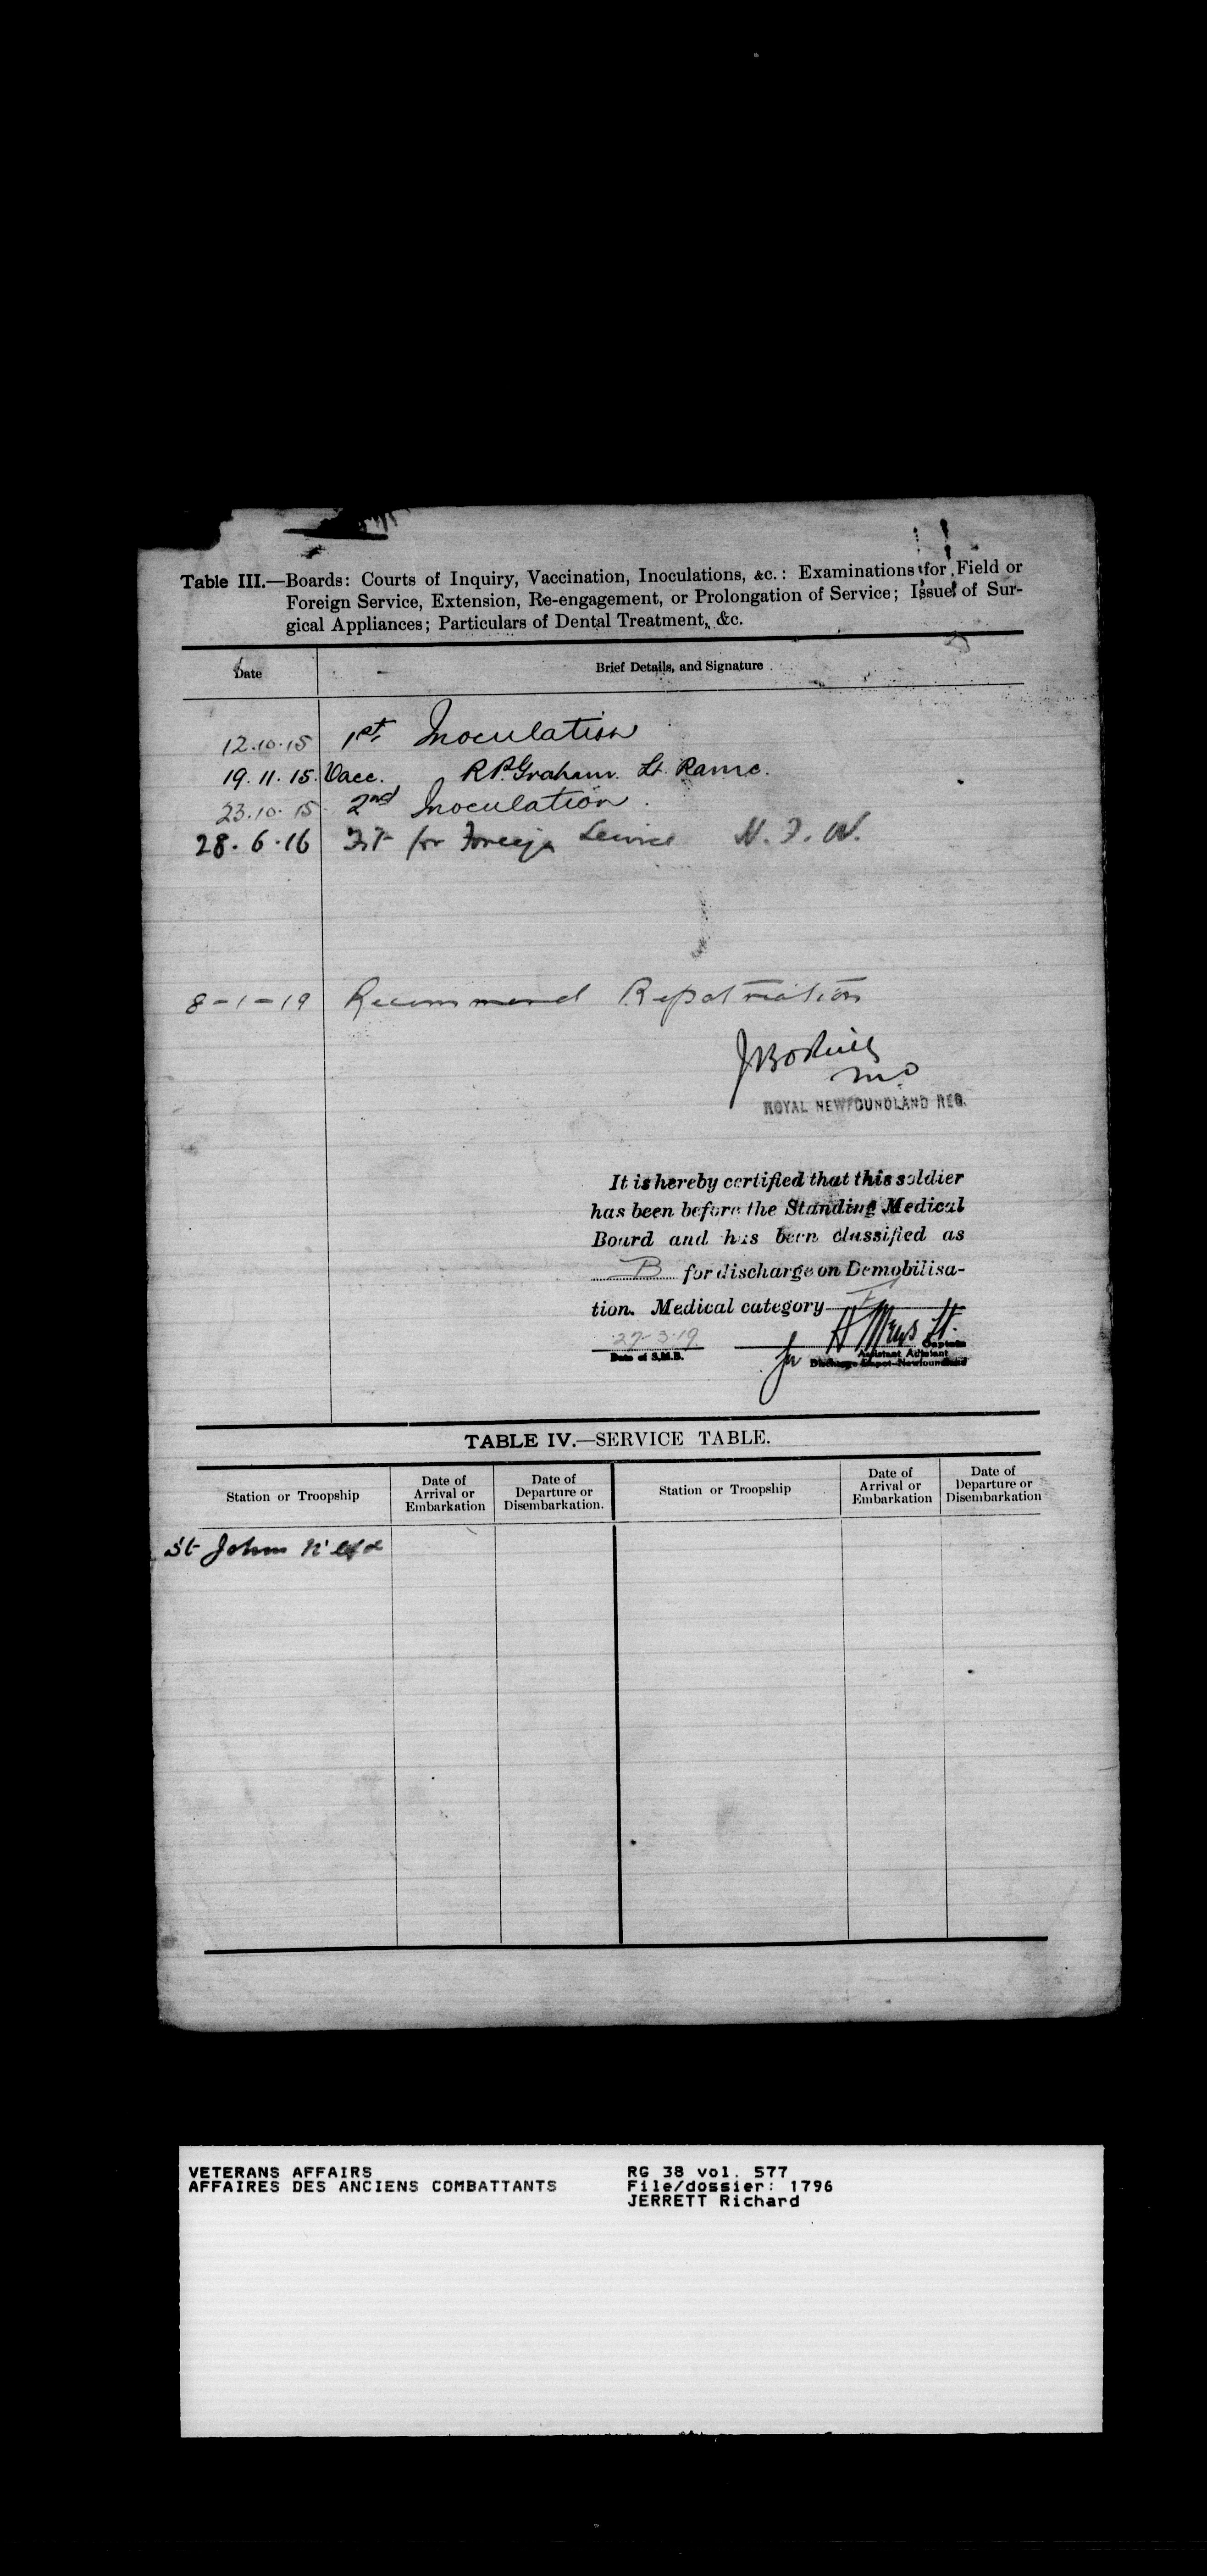 Table III.—Boards: Courts of Inquiry, Vaccination, Inoculations, &c.: Examinations for Field or
Foreign Service, Extension, Re-engagement, or Prolongation of Service; Issue of Sur-
gical Appliances; Particulars of Dental Treatment, &c.
Date Brief Details, and Signature
12.10.15 1st Inoculation
19.11.15. Vacc. R.P. Graham. Lt. Ramc.
23.10.15 2nd Inoculation.
28.6.16 Fit for Foreign Service N.F.W.
8-1-19 Recommend Repatriation
MO
ROYAL NEWFOUNDLAND REG.
It is hereby certified that this soldier
has been before the Standing Medical
Board and has been classified as
B for discharge on Demobilisa-
tion. Medical category
27-3-19 Lt.
Date of S.M.B. for Captain
Assistant Adjutant
Discharge Depot-Newfoundland
TABLE IV.—SERVICE TABLE.
Station or Troopship Date of Arrival or Embarkation Date of Departure or Disembarkation. Station or Troopship Date of Arrival or Embarkation Date of Departure or Disembarkation
St Johns N'
VETERANS AFFAIRS RG 38 vol. 577
AFFAIRES DES ANCIENS COMBATTANTS File/dossier: 1796
JERRETT Richard